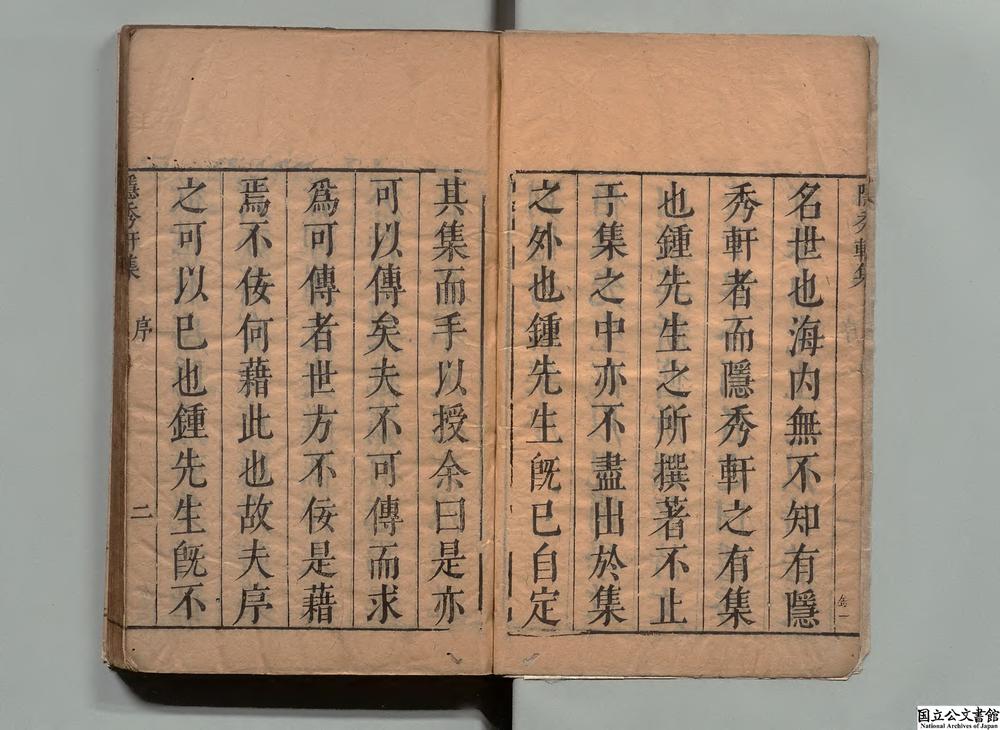 隱秀軒集
名世也海内無不知有隱
秀軒者而隱秀軒之有集
也鍾先生之所撰著不止
于集之中亦不盡出於集
之外也鍾先生旣已自定
其集而手以授余曰是亦
可以傳矣夫不可傳而求
爲可傳者世方不佞是藉
焉不佞何藉此也故夫序
之可以已也鍾先生旣不
隱秀軒集 序 二
国立公文書館
National Archives of Japan